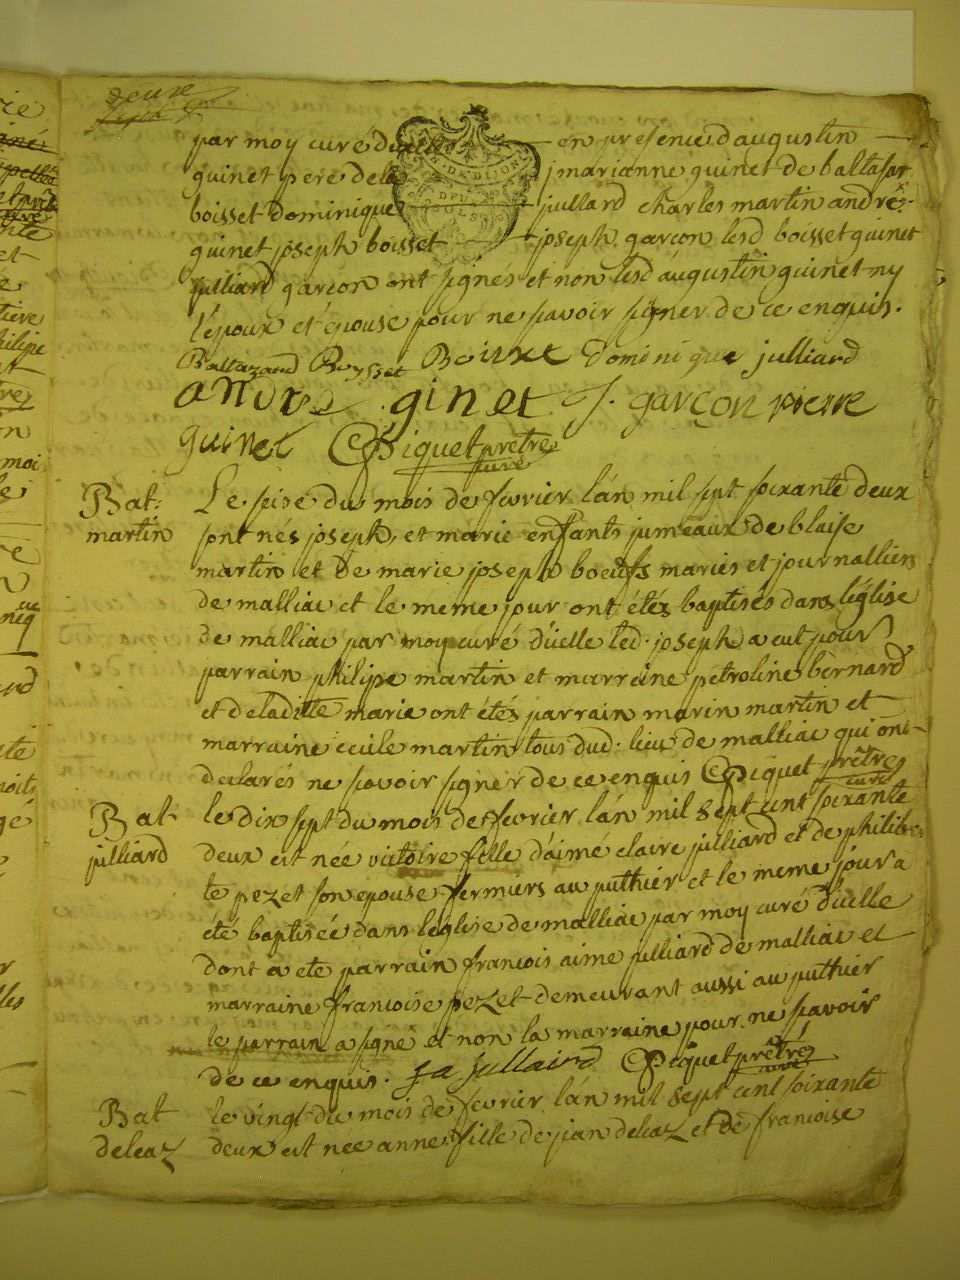 deuxe
par moy curé duelle en presence d'augustin
guinet pere de la marianne guinet de baltasar
boisset dominique julliard charles martin andré
guinet joseph boisset joseph garçon lesd boisset guinet
julliard garçon ont signés et non lesd augustin guinet ny
l'époux et épouse pour ne savoir signer de ce enquis.
Baltazard Boysset Boisset dominique julliard
andre ginet J. garçon pierre
guinet CPiquet prêtre
curé
Bat: Le seise du mois de fevrier l'án mil sept soixante deux
martin sont nés joseph, et marie enfants jumeaux de blaise
martin et de marie joseph boeufs mariés et journalliers
de malliac et le meme jour ont étés baptisés dans l'église
de malliac par moy curé d'uelle led. joseph a eut pour
parrain philipe martin et marraine petroline bernard
et de laditte marie ont étés parrain marin martin et
marraine cecile martin tous dud. lieu de malliac qui ont
declarés ne savoir signer de ce enquis CPiquet prêtre
curé
Bat le dix sept du mois de fevrier l'án mil sept cent soixante
julliard deux est née victoire fille d'aimé claire julliard et de philiber
te pezet son epouse fermiers au puthier et le meme jour a
été baptisée dans l'eglise de malliac par moy curé d'uelle
dont a eté parrain francois aime julliard de malliac et
marraine francoise pezet demeurant aussi au puthier
le parrain a signé et non la marraine pour ne savoir
de ce enquis. fa Julliard CPiquet prêtre
curé
Bat le vingt du mois de fevrier l'án mil sept cent soixante
deleaz deux est nee anne fille de jean deleaz et de francoise